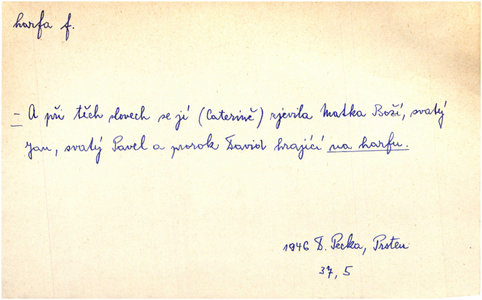 harfa f.
– A při těch slovech se jí (Caterině) zjevila Matka Boží, svatý
Jan, svatý Pavel a prorok David hrající na harfu.
1946 D. Pecka, Prsten
37, 5